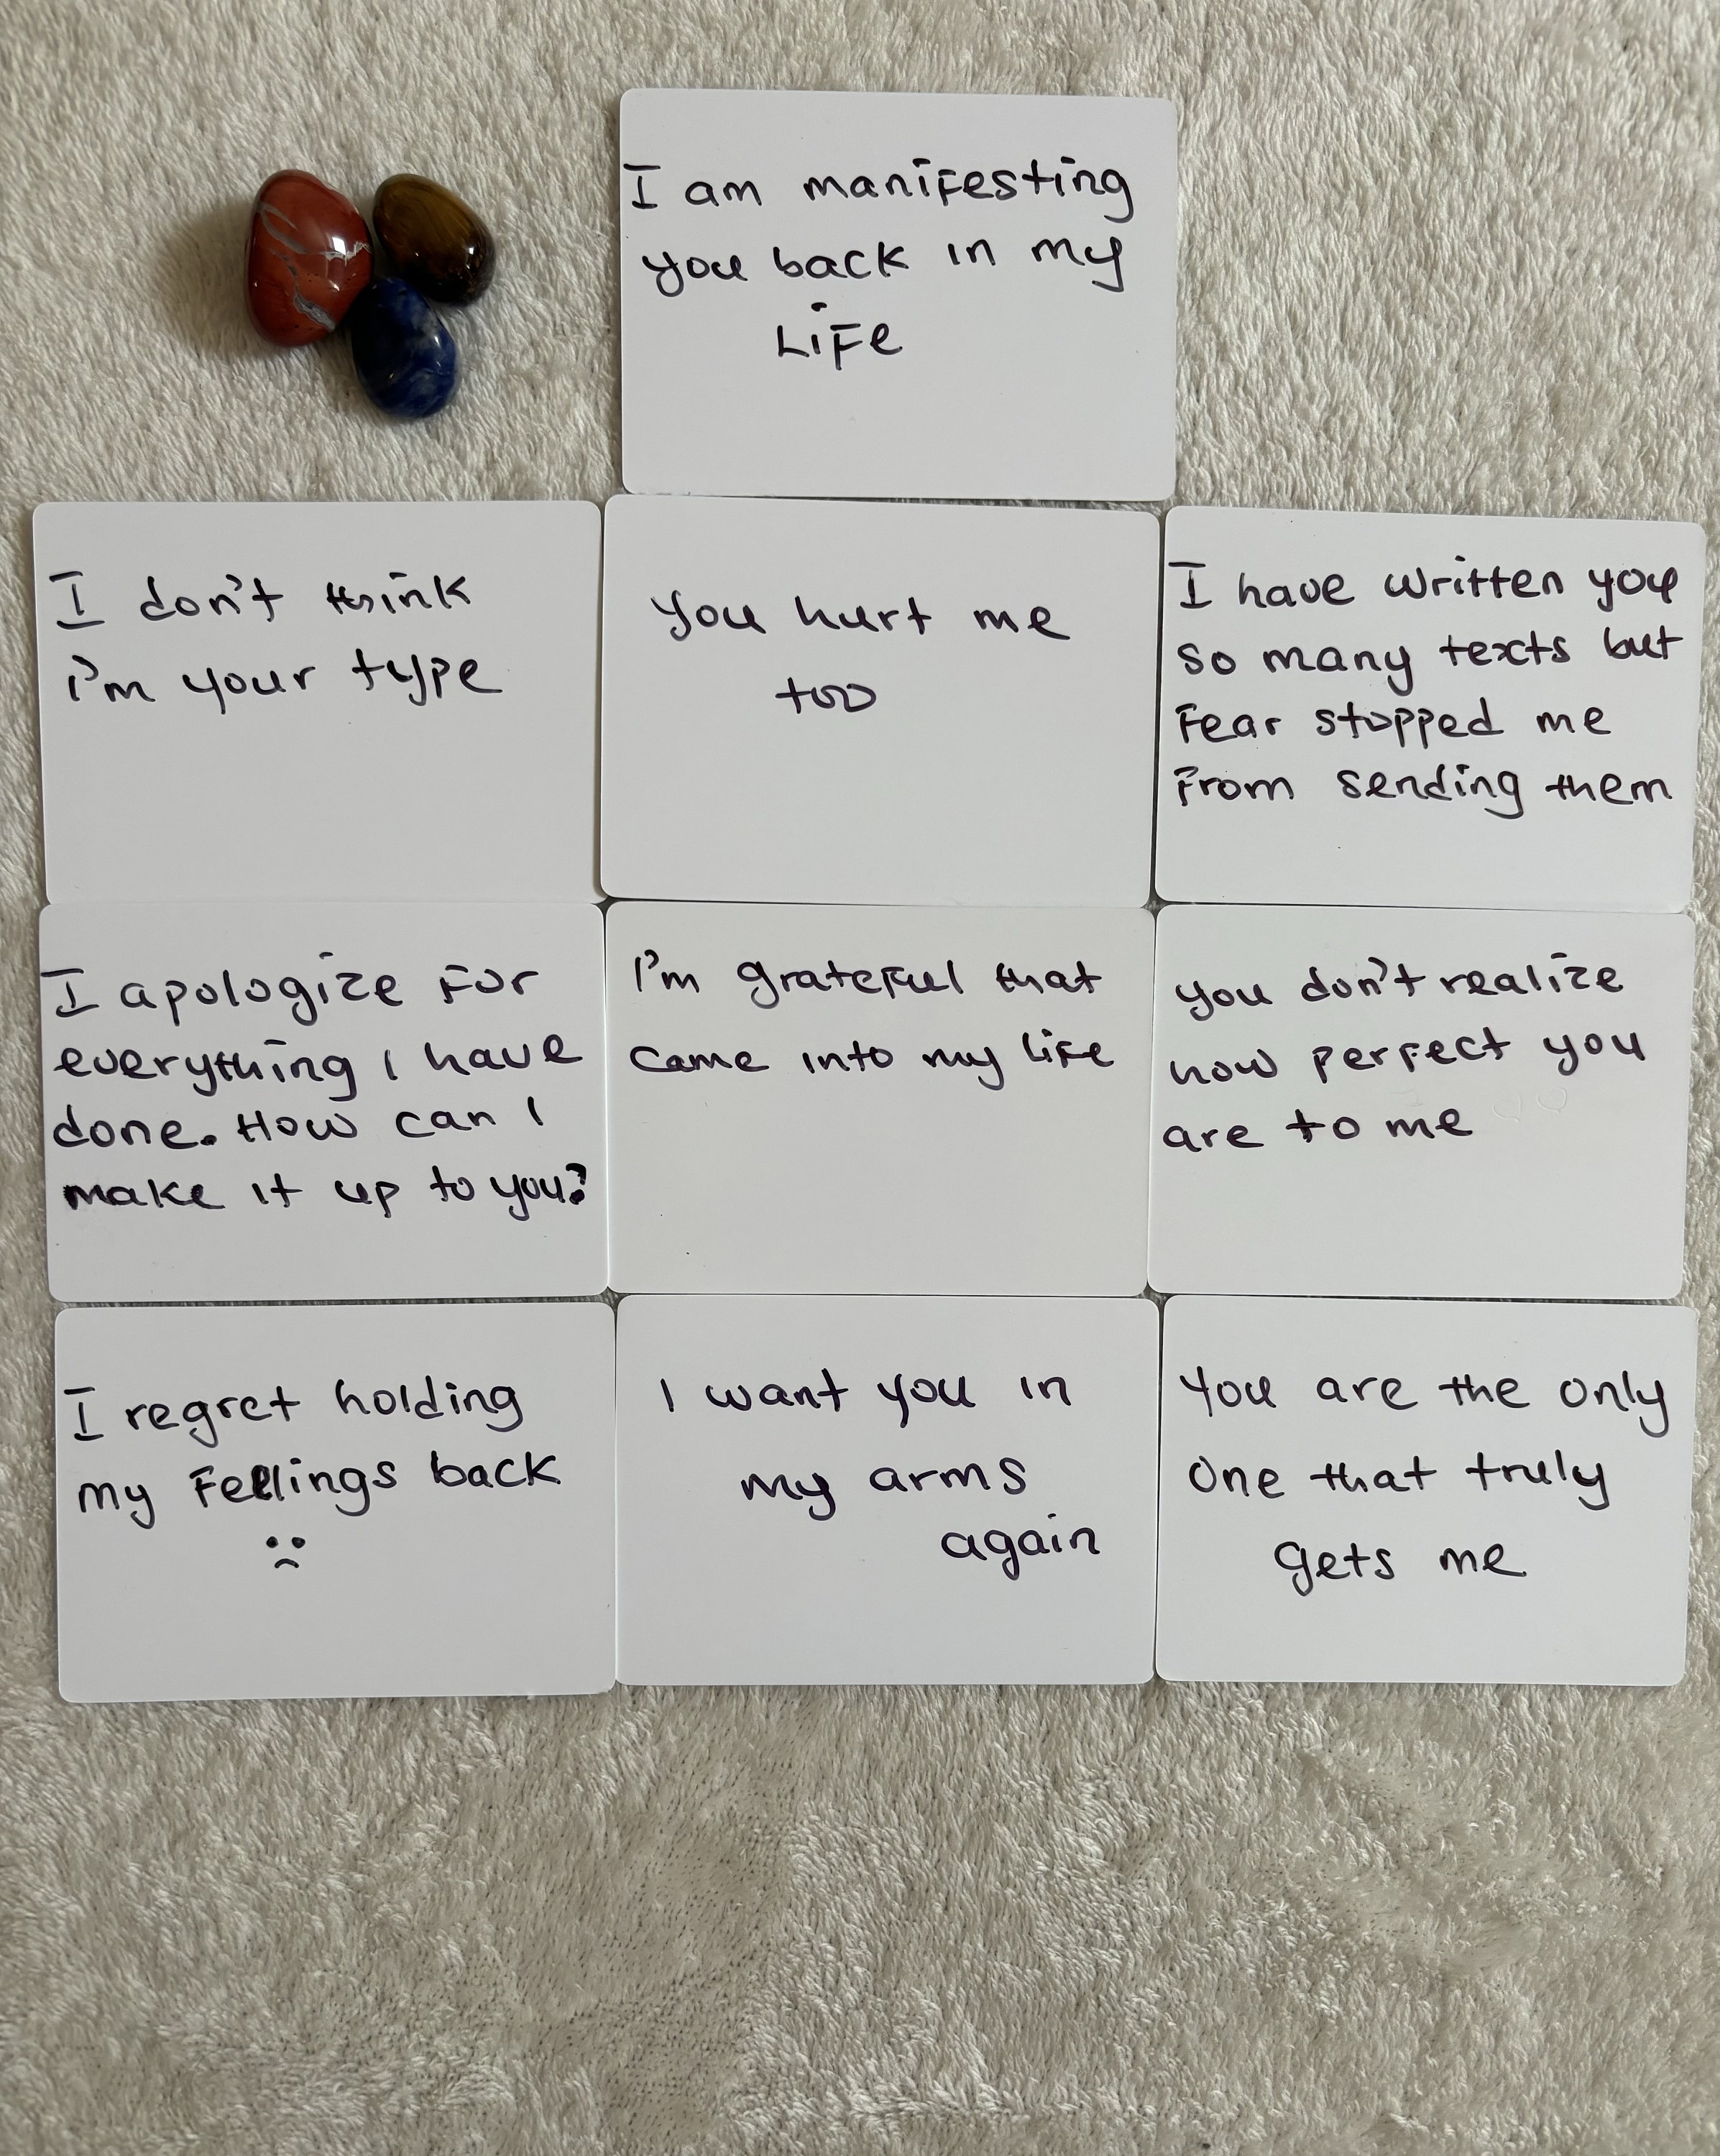 I am manifesting
you back in my
Life
I don't think
i'm your type
You hurt me
too
I have written you
so many texts but
Fear stopped me
From sending them
I apologize For
everything I have
done. How can I
make it up to you?
I'm grateful that
came into my life
you don't realize
how perfect you
are to me
I regret holding
my Feelings back
I want you in
my arms
again
You are the only
one that truly
gets me